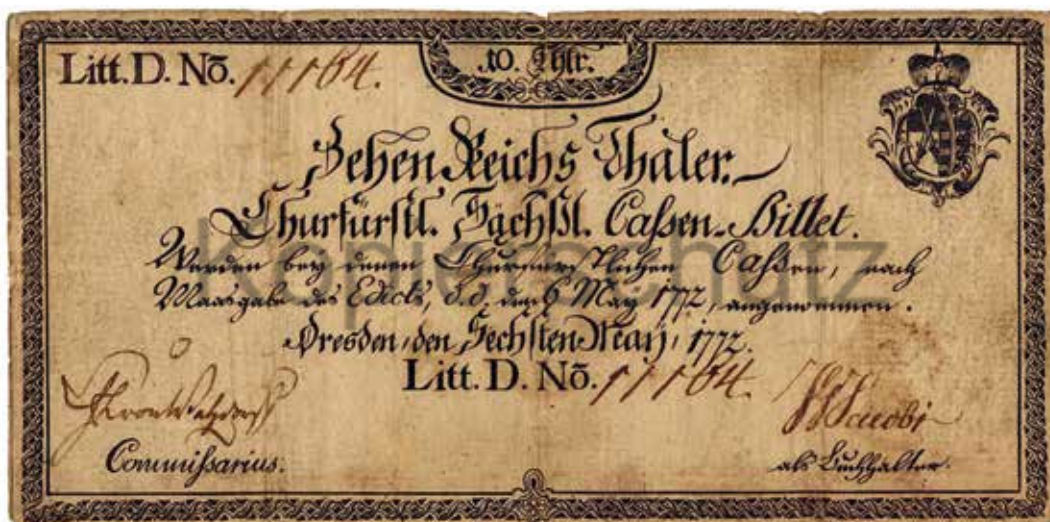 Litt. D. Nō. 11164.
.10. Thlr.
Zehen Reichs Thaler.
Churfürstl. Sächßl. Caßen-Billet.
Werden bey denen Churfürstlichen Caßen, nach
Maasgabe des Edicts, d.d. den 6 May 1772, angenommen.
Dresden, den Sechsten May, 1772.
Litt. D. Nō. 11164.
Jacobi
Commißarius.
als Buchhalter.
Kopierschutz